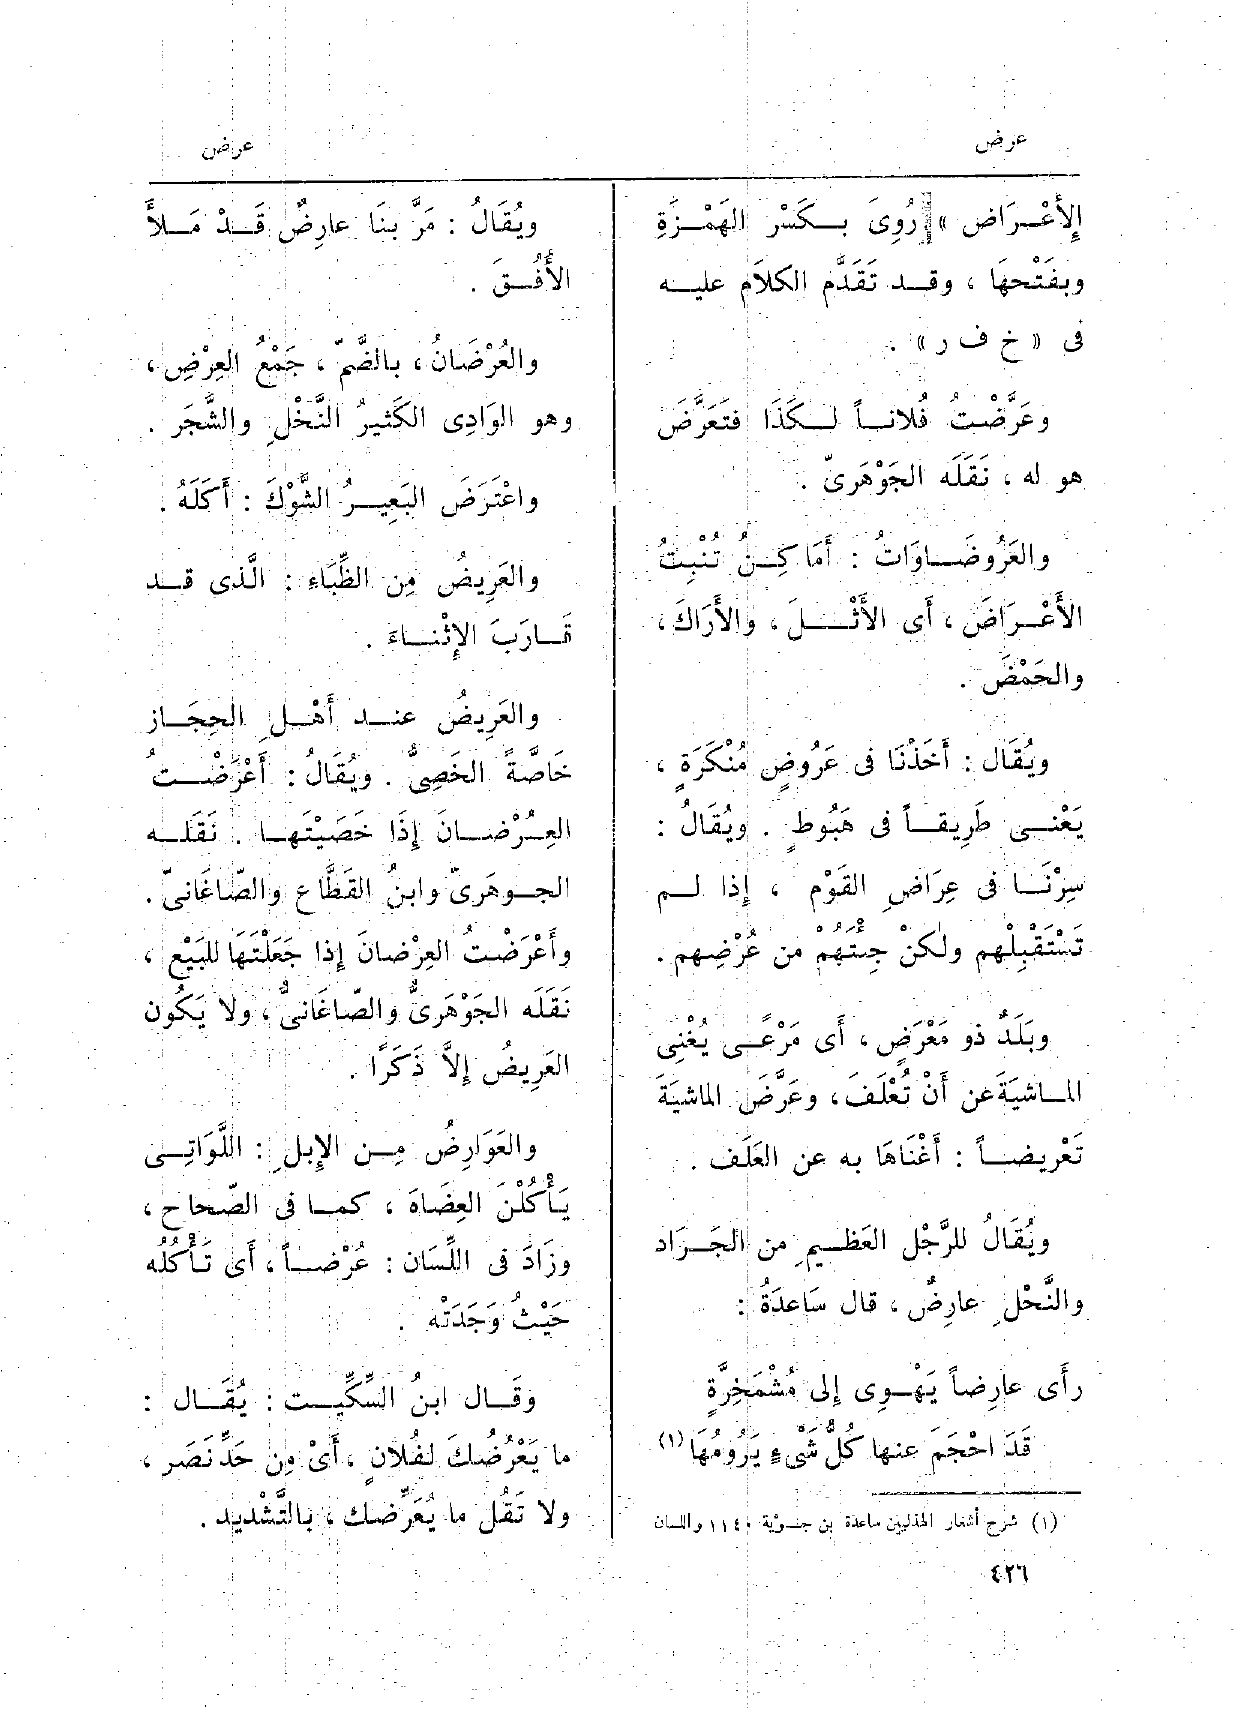 عرض
عرض
الإِعْرَاض » رُوِىَ بِكَسْرِ الهَمْزَةِ
وبفَتْحهَا ، وقد تَقَدَّم الكَلَام عليه
فى « خ ف ر » .
وعَرَّضْتُ فُلاناً لكَذَا فتَعَرَّضَ
هو له ، نَقَلَه الجَوْهَرِىّ .
والعَرُوضَاوَاتُ : أَمَاكِنُ تُنْبِتُ
الأَعْرَاضَ ، أَى الأَثْلَ ، والأَرَاكَ ،
والحَمْضَ .
ويُقَال : أَخَذْنَا فى عَرُوضٍ مُنْكَرَةٍ ،
يَعْنى طَرِيقاً فى هَبُوطٍ . ويُقَالُ :
سِرْنَا فى عِرَاضِ القَوْم ، إِذا لم
تَسْتَقْبِلْهم ولٰكنْ جِئْتَهُمْ من عُرْضِهم .
وبَلَدٌ ذو مَعْرَضٍ ، أَى مَرْعًى يُغْنِى
الماشيَةَ عن أَنْ تُعْلَفَ ، وعَرَّضَ الماشيَةَ
تَعْرِيضاً : أَغْنَاهَا به عن العَلَف .
ويُقَالُ للرَّجْل العَظيمِ من الجَرَاد
والنَّحْلِ عارِضٌ ، قال سَاعدَةُ :
رأَى عارِضاً يَهْوِى إلى مُشْمَخِرَّةٍ
قَدَ احْجَمَ عنها كُلُّ شَىْءٍ يَرُومُهَا (١)
(١) شرح أشعار الهذليين ساعدة بن جؤية ١١٤٠ واللسان
ويُقَالُ : مَرَّ بنَا عارِضٌ قَدْ مَلأَ
الأُفُقَ .
والعُرْضَانُ ، بالضَّمّ ، جَمْعُ العِرْضِ ،
وهو الوَادِى الكَثيرُ النَّخْلِ والشَّجَر .
واعْتَرَضَ البَعِيرُ الشَّوْكَ : أَكَلَهُ .
والعَرِيضُ مِن الظِّبَاء : الَّذى قد
قَارَبَ الإِثْناءَ .
والعَرِيضُ عند أَهْلِ الحِجَاز
خَاصَّةً الخَصِىُّ . ويُقَالُ : أَعْرَضْتُ
العِرْضانَ إِذَا خَصَيْتَها . نَقَله
الجوهَرىّ وابنُ القَطَّاع والصّاغَانىّ .
وأَعْرَضْتُ العِرْضانَ إِذا جَعَلْتَهَا للبَيْع ،
نَقَلَه الجَوْهَرىُّ والصّاغَانىُّ ، ولا يَكُون
العَرِيضُ إِلاَّ ذَكَرًا .
والعَوَارِضُ مِن الإِبلِ : اللَّوَاتِى
يَأْكُلْنَ العِضَاهَ ، كما فى الصّحاح ،
وزَادَ فى اللِّسَان : عُرْضاً ، أَى تَأْكُلُه
حَيْثُ وَجَدَتْه .
وقَال ابنُ السِّكِّيت : يُقَال :
ما يَعْرُضُكَ لفُلَانٍ ، أَىْ مِن حَدِّ نَصَر ،
ولا تَقُل ما يُعَرِّضك ، بالتَّشْديد .
٤٢٦